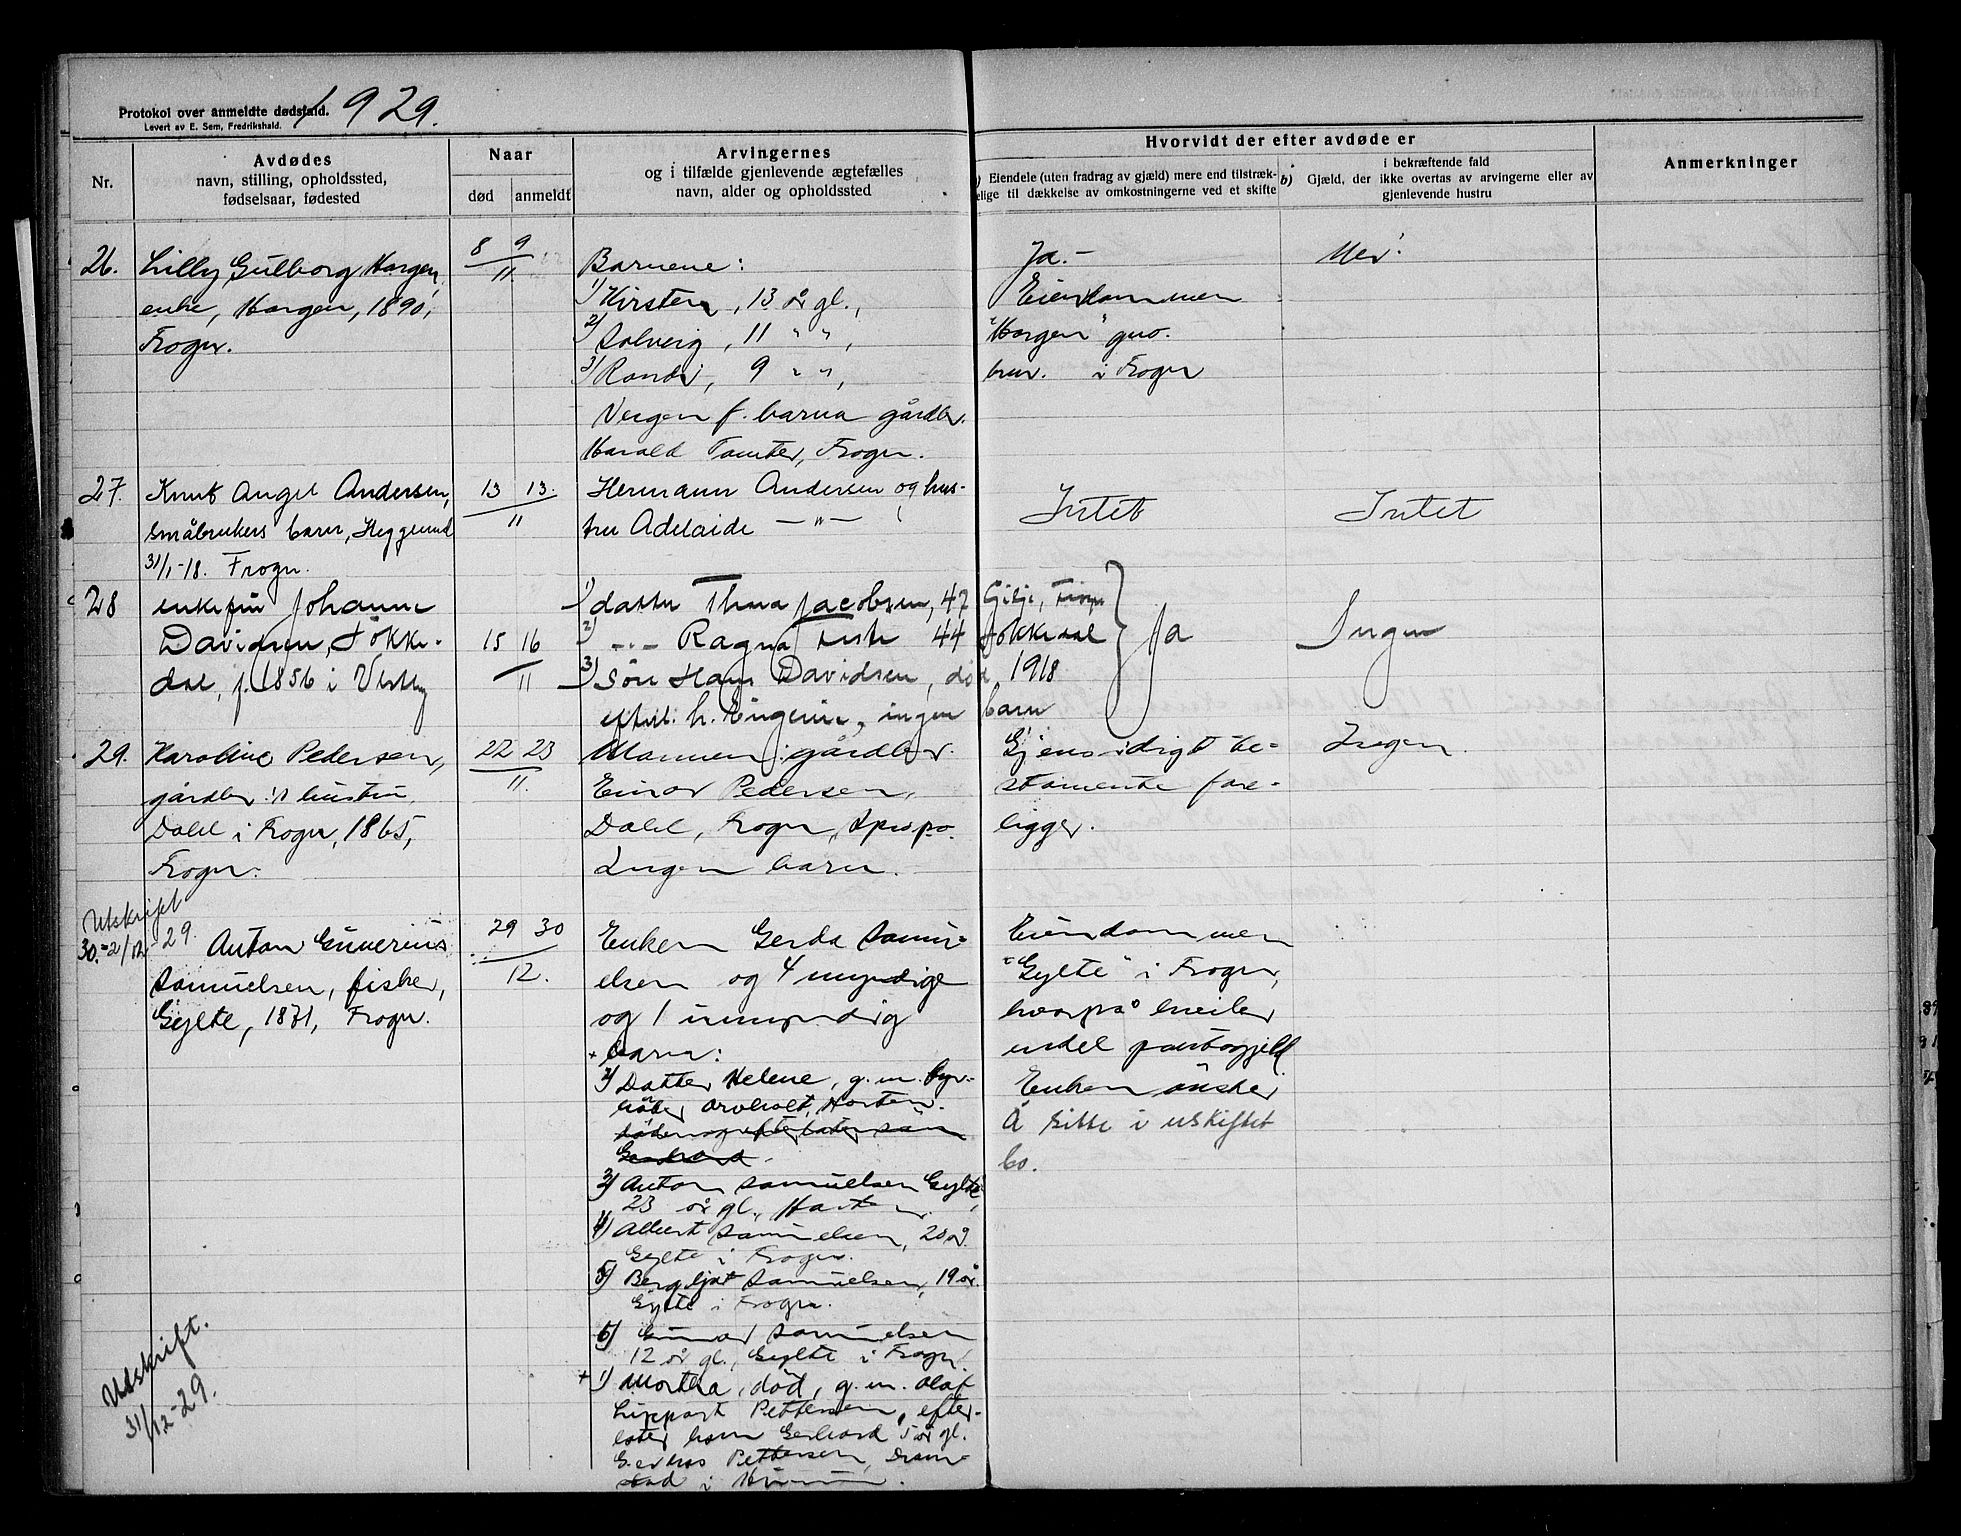 Protokol over anmeldte dødsfald. 1929.
Levert av E. Sem, Fredrikshald.
Nr.
Avdødes
navn, stilling, opholdssted,
fødselsaar, fødested
Naar
død anmeldt
Arvingernes
og i tilfælde gjenlevende ægtefælles
navn, alder og opholdssted
Hvorvidt der efter avdøde er
Eiendele (uten fradrag av gjæld) mere end tilstræk-
elige til dækkelse av omkostningerne ved et skifte
b) Gjæld, der i bekræftende fald
ikke overtas av arvingerne eller av
gjenlevende hustru
Anmerkninger
26. Lilly Gulborg Horgen,
enke, Horgen, 1890,
Frogn.
8 9
11.
Barnene:
1) Kirsten, 13 år gl.,
2) Solveig, 11 " ",
3) Randi, 9 " ",
Vergen f. barna gårdbr.
Harald Tomter, Frogn.
Ja.-
Eiendommen
"Horgen" gno.
bno. i Frogn
Nei.
27. Knut Angel Andersen,
småbrukers barn, Heggelund
31/1-18. Frogn.
13 13.
11
Hermann Andersen og hus-
tru Adelaide -"-
Intet
Intet
28 enkefru Johanne
Davidsen, Søkke-
dal, f. 1856 i Vestby
15 16
11
1) datter Thea Jacobsen, 47 Frogn
2) -"- Ragna 44 Søkkedal
3) søn Hans Davidsen, død 1918
efterl. h. Eugenie, ingen barn
Ja
Ingen
29. Karoline Pedersen,
gårdbr.'s hustru,
Dalel i Frogn, 1865,
Frogn.
22 23
11.
Mannen: gårdbr.
Einar Pedersen,
Dalel, Frogn,
Ingen barn.
Gjensidigt te-
stamente fore-
ligger.
Ingen.
Utskrift
30. 2/12-29. Anton Guverius
Samuelsen, fisker,
Gylte, 1871, Frogn.
29 30
12.
Enken Gerda Samu-
elsen og 4 myndige
og 1 umyndig
+ barn:
2) Datter Helene, g.m. byr-
Arvholt, Horten.
Gerhard.
3) Anton Samuelsen Gylte,
23 år gl., Horten.
4) Albert Samuelsen, 20 år.
Gylte i Frogn.
5) Bergljot Samuelsen, 19 år.
Gylte i Frogn.
6) Gunnar Samuelsen
12 år gl., Gylte i Frogn.
+ 1) Martha, død, g.m. Olaf
Lippart Pettersen, efter-
later barn Gerhard 5 år gl.
Pettersen, Dram-
stad i Hurum.
Eiendommen
"Gylte" i Frogn,
hvorpå hviler
endel pantegjeld.
Enken ønsker
å sitte i uskiftet
bo.
Utskrift.
31/12-29.